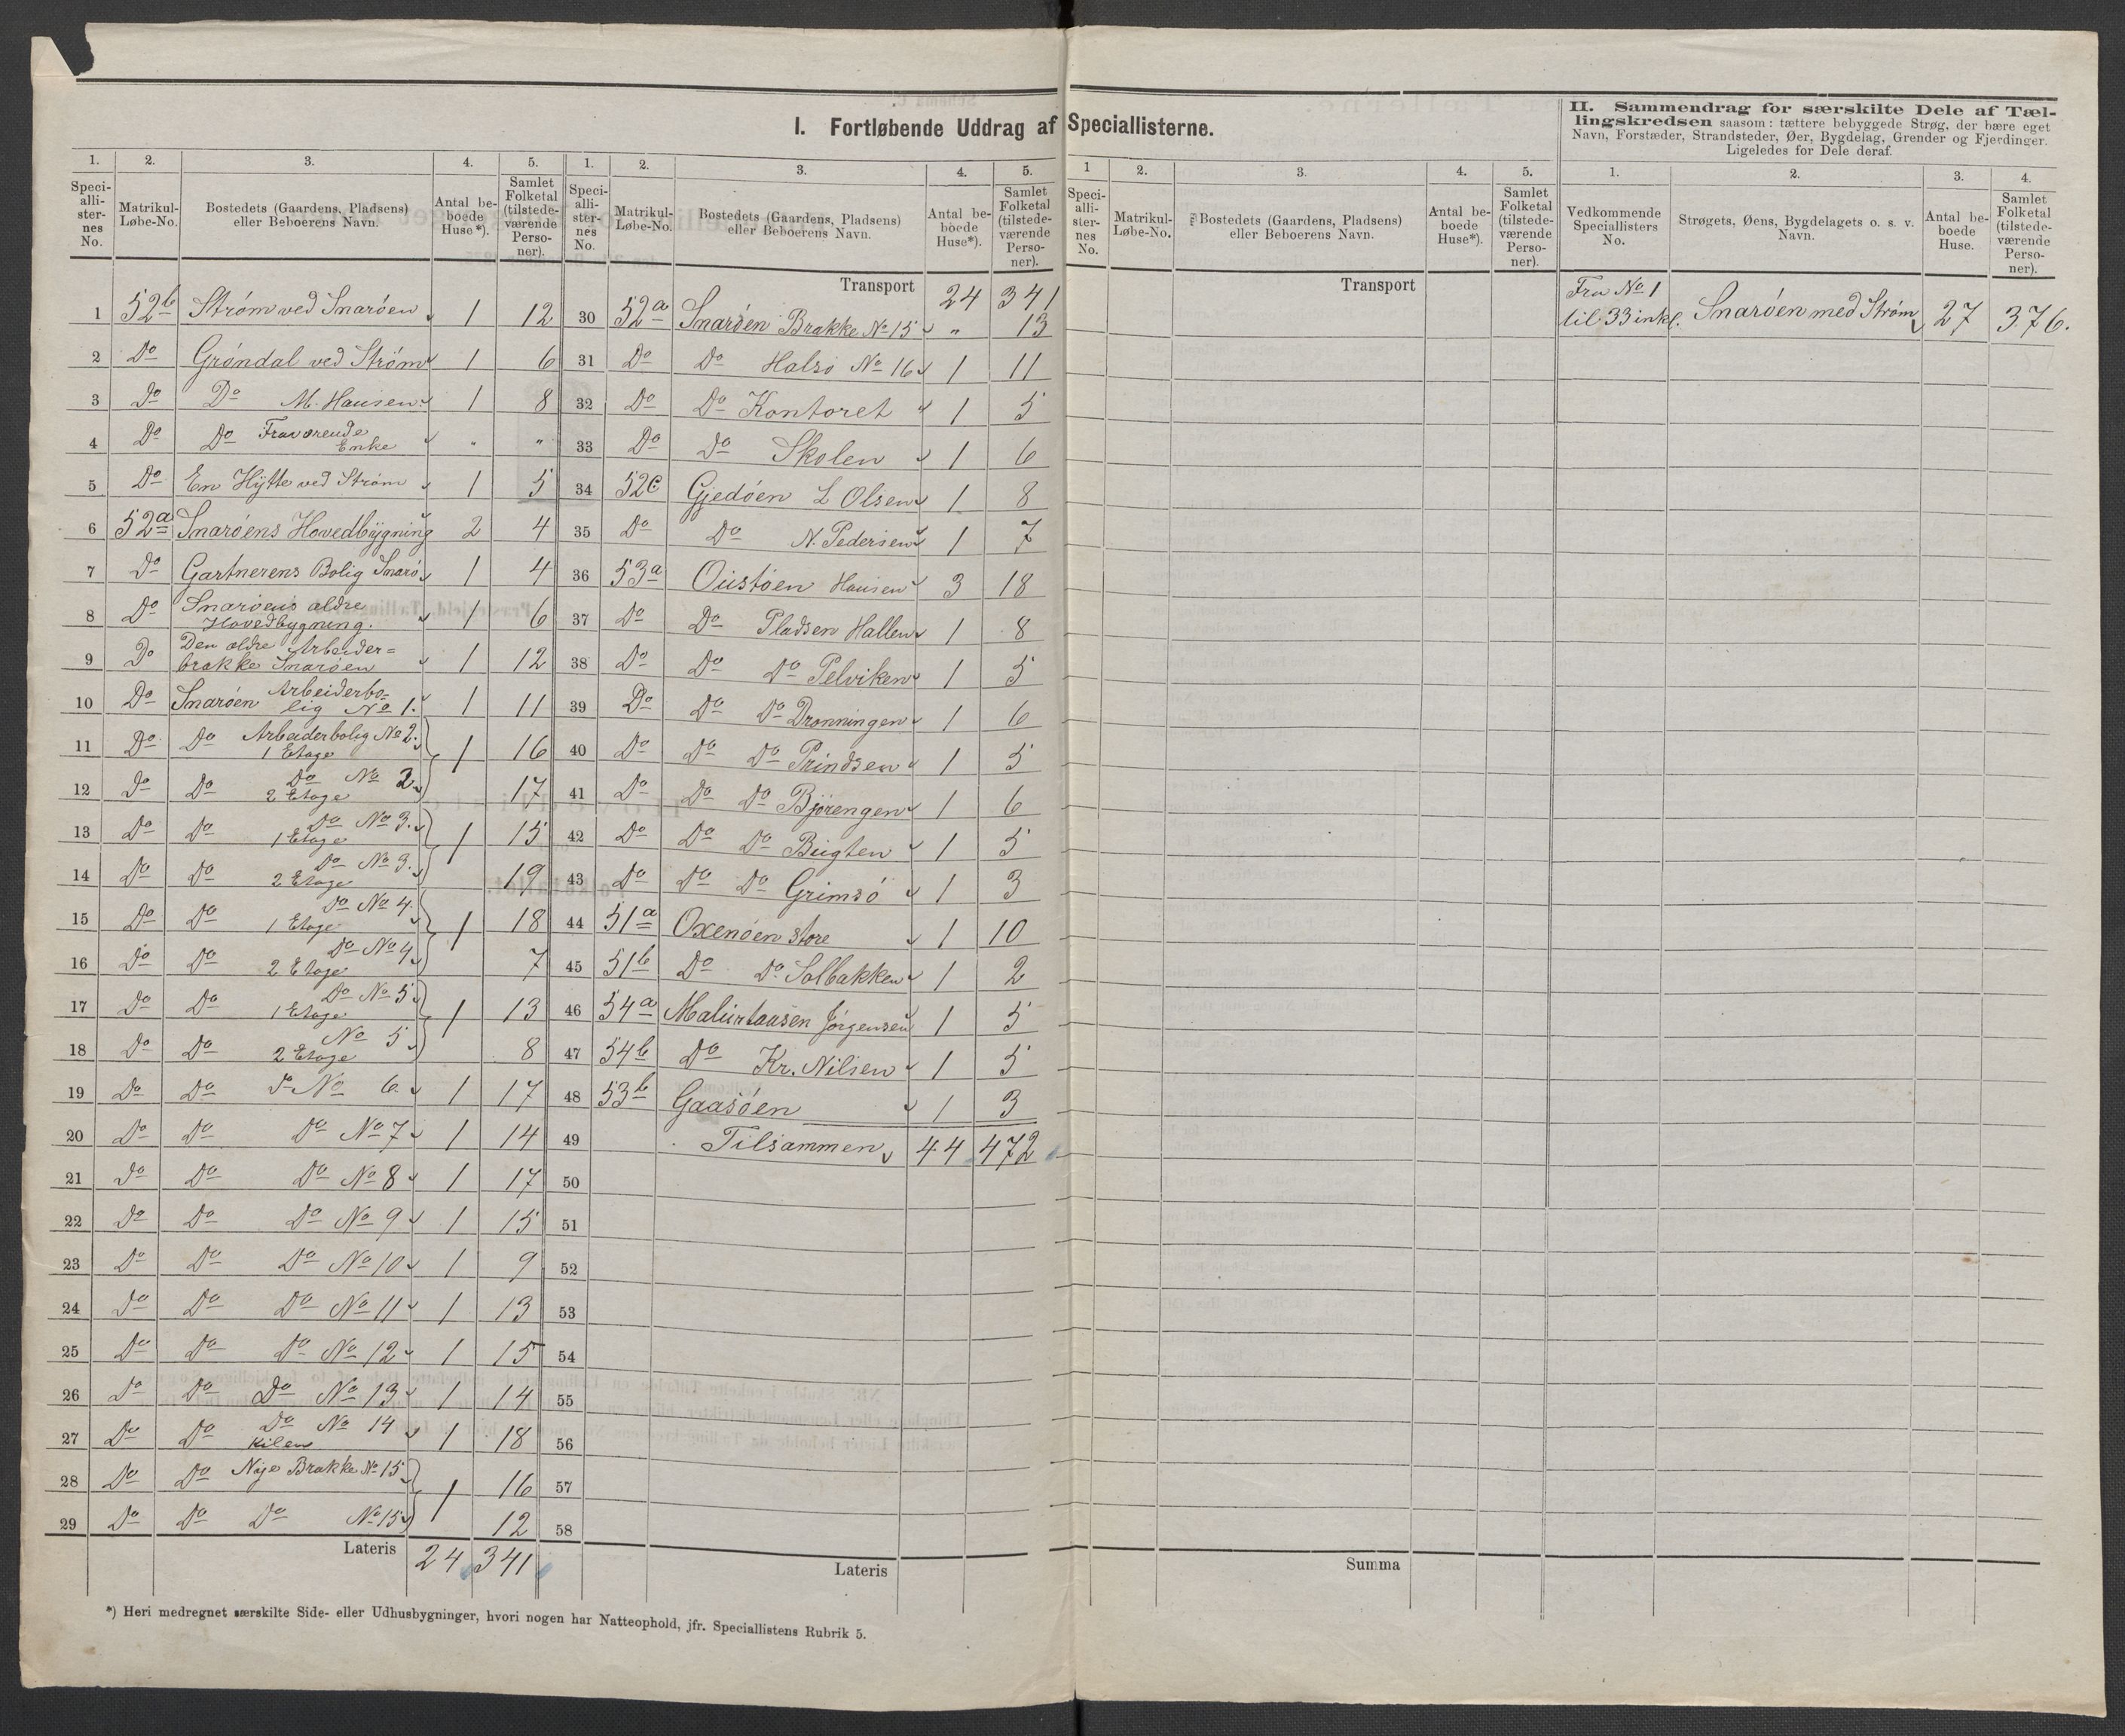 I. Fortløbende Uddrag af Speciallisterne.
1. 2. 3. 4. 5.
Speciallisternes No. Matrikul-Løbe-No. Bostedets (Gaardens, Pladsens) eller Beboerens Navn. Antal beboede Huse*). Samlet Folketal (tilstedeværende Personer).
1 52b Strøm ved Snarøen 1 12
2 Do Grøndal ved Strøm 1 6
3 Do Do M. Hansen 1 8
4 Do Do Fraværende Enke " "
5 Do En Hytte ved Strøm 1 5
6 52a Snarøens Hovedbygning 2 4
7 Do Gartnerens Bolig Snarø 1 4
8 Do Snarøens ældre Hovedbygning. 1 6
9 Do Den ældre Arbeider=
brakke Snarøen 1 12
10 Do Snarøen Arbeiderbo=
lig No 1. 1 11
11 Do Do Arbeiderbolig No 2.
1 Etage 1 16
12 Do Do Do No 2.
2 Etage 17
13 Do Do Do No 3.
1 Etage 1 15
14 Do Do Do No 3.
2 Etage 19
15 Do Do Do No 4.
1 Etage 1 18
16 Do Do Do No 4
2 Etage 7
17 Do Do Do No 5
1 Etage 1 13
18 Do Do No 5
2 Etage 8
19 Do Do Do No 6. 1 17
20 Do Do Do No 7 1 14
21 Do Do Do No 8 1 17
22 Do Do Do No 9 1 15
23 Do Do Do No 10 1 9
24 Do Do Do No 11 1 13
25 Do Do Do No 12 1 15
26 Do Do Do No 13 1 14
27 Do Do Do No 14
Kilen 1 18
28 Do Do Nye Brakke No 15 1 16
29 Do Do Do No 15 12
Lateris 24 341
*) Heri medregnet særskilte Side- eller Udhusbygninger, hvori nogen har Natteophold, jfr. Speciallistens Rubrik 5.
1. 2. 3. 4. 5.
Speciallisternes No. Matrikul-Løbe-No. Bostedets (Gaardens, Pladsens) eller Beboerens Navn. Antal beboede Huse*). Samlet Folketal (tilstedeværende Personer).
Transport 24 341
30 52a Snarøen Brakke No 15 " 13
31 Do Do Halsø No 16 1 11
32 Do Do Kontoret 1 5
33 Do Do Skolen 1 6
34 52c Gjedøen L Olsen 1 8
35 Do Do N. Pedersen 1 7
36 53a Oustøen Hansen 3 18
37 Do Do Pladsen Hallen 1 8
38 Do Do Do Pelviken 1 5
39 Do Do Do Dronningen 1 6
40 Do Do Do Prindsen 1 5
41 Do Do Do Bjørengen 1 6
42 Do Do Do Bugten 1 5
43 Do Do Do Grimsø 1 3
44 51a Oxenøen store 1 10
45 51b Do Do Solbakken 1 2
46 54a Jørgensen 1 5
47 54b Do Kr. Nilsen 1 5
48 53b Gaasøen 1 3
49 Tilsammen 44 472
50
51
52
53
54
55
56
57
58
Lateris
1 2. 3. 4. 5.
Speciallisternes No. Matrikul-Løbe-No. Bostedets (Gaardens, Pladsens) eller Beboerens Navn. Antal beboede Huse*). Samlet Folketal (tilstedeværende Personer).
Transport
Summa
II. Sammendrag for særskilte Dele af Tæl-
lingskredsen saasom: tættere bebyggede Strøg, der bære eget
Navn, Forstæder, Strandsteder, Øer, Bygdelag, Grender og Fjerdinger.
Ligeledes for Dele deraf.
1. 2. 3. 4.
Vedkommende Speciallisters No. Strøgets, Øens, Bygdelagets o. s. v. Navn. Antal beboede Huse. Samlet Folketal (tilstedeværende Personer).
Fra No 1
til 33 inkl. Snarøen med Strøm 27 376.